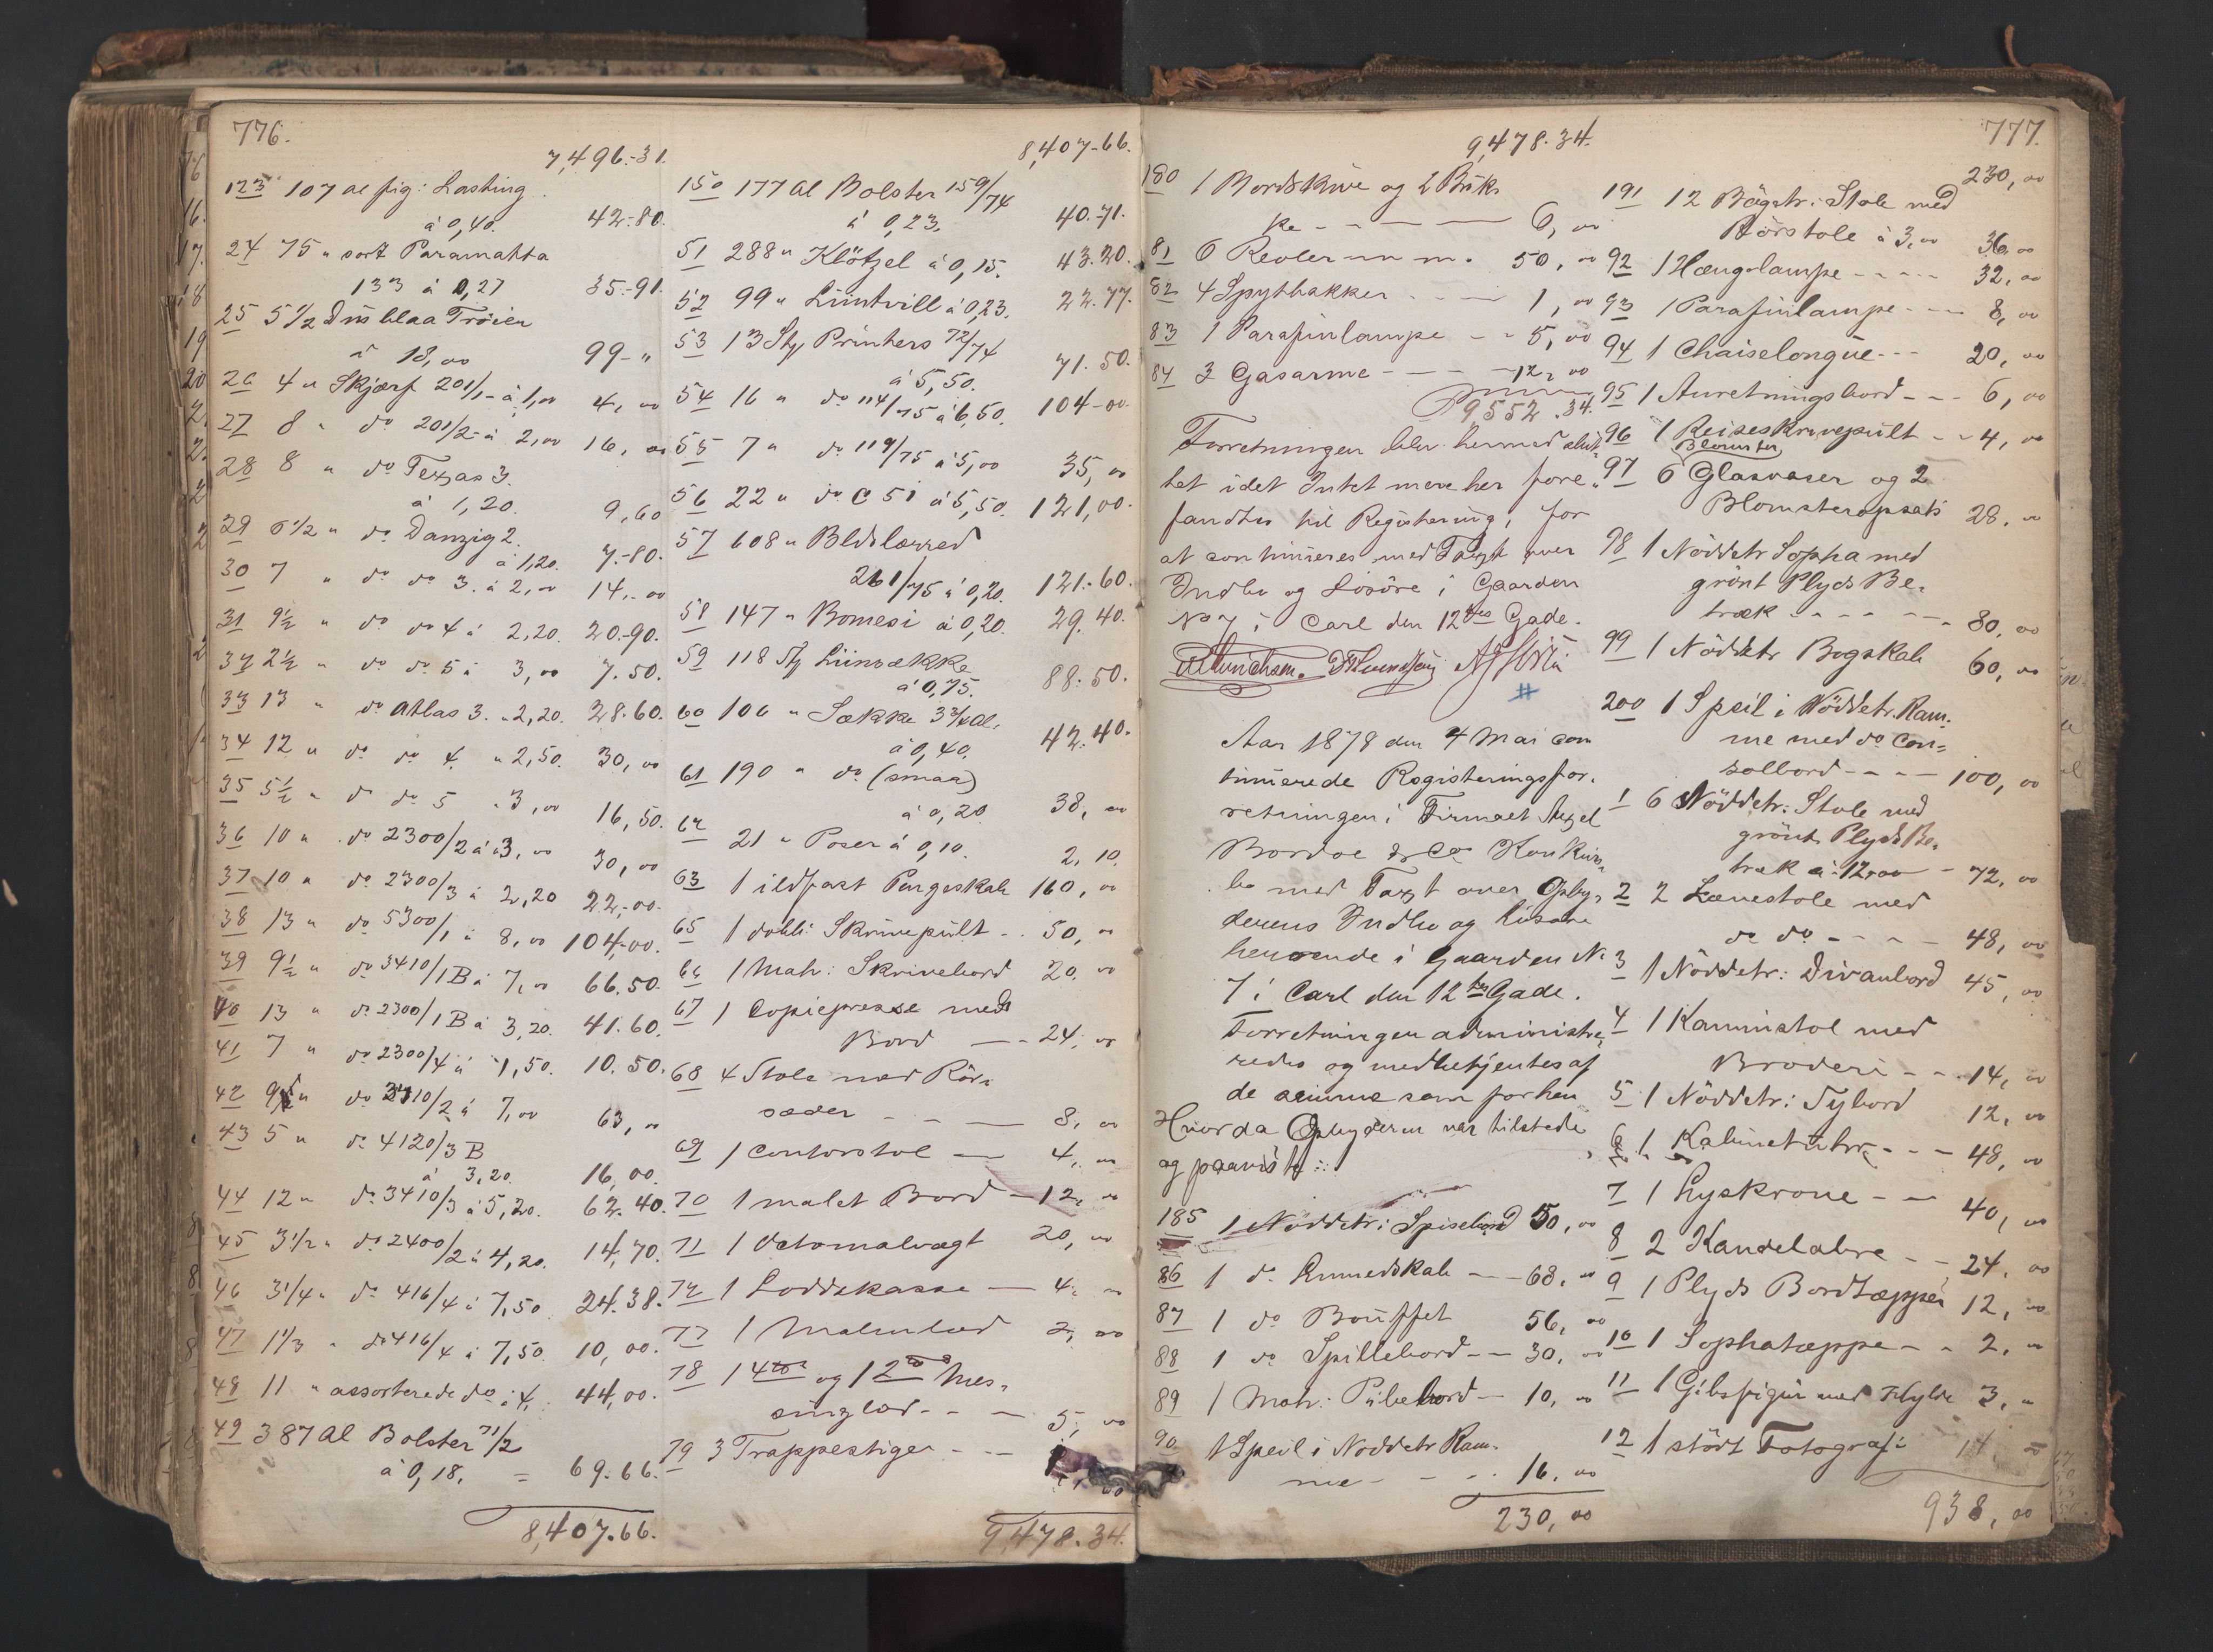 776.
7,496-31.
123 107 al fig: Lasting
à 0,40. 42-80.
24 75 " sort Paramatta
133 à 0,27 35-91.
25 5 1/2 Dus blaa Trøier
à 18,00 99-"
26 4 " Skjærf 201/1 - à 1,00 4,00
27 8 " do 201/2 - à 2,00 16,00
28 8 " do Texas 3.
à 1,20. 9,60
29 6 1/2 " do Danzig 2.
à 1,20. 7-80.
30 7 " do do 3. à 2,00 14,-00
31 9 1/2 " do do 4 à 2,20. 20-90.
32 2 1/2 " do do 5 à 3,00 7.50.
33 13 " do Atlas 3. " 2,20. 28.60.
34 12 " do do 4. " 2,50. 30,00
35 5 1/2 " do do 5 " 3,00 16,50.
36 10 " do 2300/2 à 3,00 30,00
37 10 " do 2300/3 à 2,20 22,-00.
38 13 " do 5300/1 à 8,00 104,-00.
39 9 1/2 " do 3410/1 B à 7,00 66.50.
40 13 " do 2300/1 B à 3,20. 41.60.
41 7 " do 2300/4 à 1,50. 10.50.
42 9 " do 3410/2 à 7,00 63,00
43 5 " do 4120/3 B
à 3,20. 16,00.
44 12 " do 3410/3 à 5,20. 62.40.
45 3 1/2 " do 2400/2 à 4,20. 14,70.
46 3 1/4 " do 416/4 à 7,50 24.38.
47 1 1/3 " do 416/4 à 7,50. 10,00.
48 11 " assorterede do à 4, 44,00.
49 387 Al Bolster 71/2
à 0,18. = 69.66.
8,407.66.
8,407-66.
150 177 Al Bolster 159/74
à 0,23. 40.71.
51 288 " Klötzel à 0,15. 43.20.
52 99 " Liintvill à 0,23. 22.77.
53 13 Sty Printers 72/74
à 5,50. 71.50.
54 16 " do 114/75 à 6,50. 104-00.
55 7 " do 119/75 à 5,00 35,00
56 22 " do C 51 à 5,50. 121,00.
57 608 " Bldslærred
261/75 à 0,20. 121.60.
58 147 " Bomesi à 0,20. 29.40.
59 118 Sty Liinsække
à 0,75. 88.50.
60 106 " Sække 3 3/4 Al.
à 0,40. 42.40.
61 190 " do (smaa)
à 0,20. 38,00
62 21 " Poser à 0,10. 2.10.
63 1 ildfast Pengeskab 160,00
65 1 dobb: Skrivepult - - 50,00
66 1 Mah: Skrivebord 20.00
67 1 Copiepresse med
Bord - - 24,00
68 4 Stole med Rör-
sæder - - - 8,00
69 1 Contorstol - 4,00
70 1 malet Bord - 12,00
71 1 Detomalvægt 20,00
72 1 Loddekasse - 4,00
77 1 Malmlod 2,00
78 1 4 og 1 2 Mes-
singlod - - - 5,00
79 3 Trappestiger - - -
9,478.34.
777.
9,478.34.
180 1 Bordskive og 2 Buk-
ke - - - - 6,00
81 6 Reoler 50,00
82 4 Spytbakker - - - 1,00
83 1 Parafinlampe - - 5,00
84 3 Gasarme - - - - 12,00
9552.34.
Forretningen blev hermed slut-
tet idet Intet mere her fore-
fandtes til Registering, for
at continueres med Taxt over
Indbo og Lösöre i Gaarden
No 7 i Carl den 12tes Gade.
Aar 1878 den 4 Mai con
tinuerede Registeringsfor-
retningen i Firmaet Axel
Bordoe & Co Konkurs-
bo med Taxt over Opby-
derens Indbo og Lösöre
beroende i Gaarden No
7 i Carl den 12tes Gade.
Forretningen administre-
redes og medbetjentes af
de samme som forhen
Hvorda Opbyderen var tilstede
og paaviste:
185 1 Nöddetr: Spisebord 50,00
86 1 do Linnedskab - - 68,00
87 1 do Bouffet 56,00
88 1 do Spillebord - - 30,00
89 1 Mah: Pibebord - 10,00
90 1 Speil i Nöddetr Ram-
me - - - - 16,00
230,00
230,00
191 12 Bögetr: Stole med
Rörstole à 3,00 36,00
92 1 Hængelampe - - - - 32,00
93 1 Parafinlampe - - - 8,00
94 1 Chaiselongue - - - 20,00
95 1 Anretningsbord - - - 6,00
96 1 Reiseskrivepult - - 4,00
Blomster
97 6 Glasvaser og 2
Blomsteropsats 28,00
98 1 Nöddetr Sopha med
grönt Plyds Be-
træk - - - - - 80,00
99 1 Nöddetr Bogskab 60,00
200 1 Speil i Nöddetr. Ram-
me med do Con-
solbord - - - - 100,00
1 6 Nöddetr: Stole med
grönt Plyds Be-
træk à 12,00 - 72,00
2 2 Lænestole med
do do - - - - 48,00
3 1 Nöddetr: Divanbord 45,00
4 1 Kaminstol med
Broderi - - - 14,00
5 1 Nöddetr: Sybord 12,00
6 1 Kabinetuhr - - - 48,00
7 1 Lyskrone - - 40,00
8 2 Kandelabre - - 24,00
9 1 Plyds Bordtæppe 12,00
10 1 Sophatæppe - - 2,00
11 1 Gibsfigur med Hylde 3,00
12 1 stört Fotografi 14,00
938,00